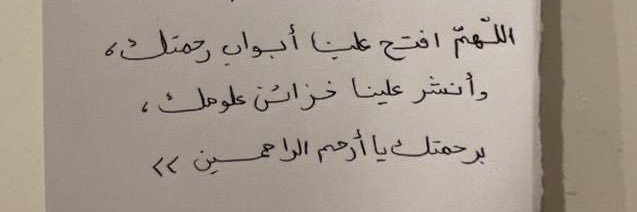 اللّهمّ افتح علينا أبواب رحمتك،
وأنشر علينا خزائن علومك،
برحمتك يا أرحم الراحمين >>